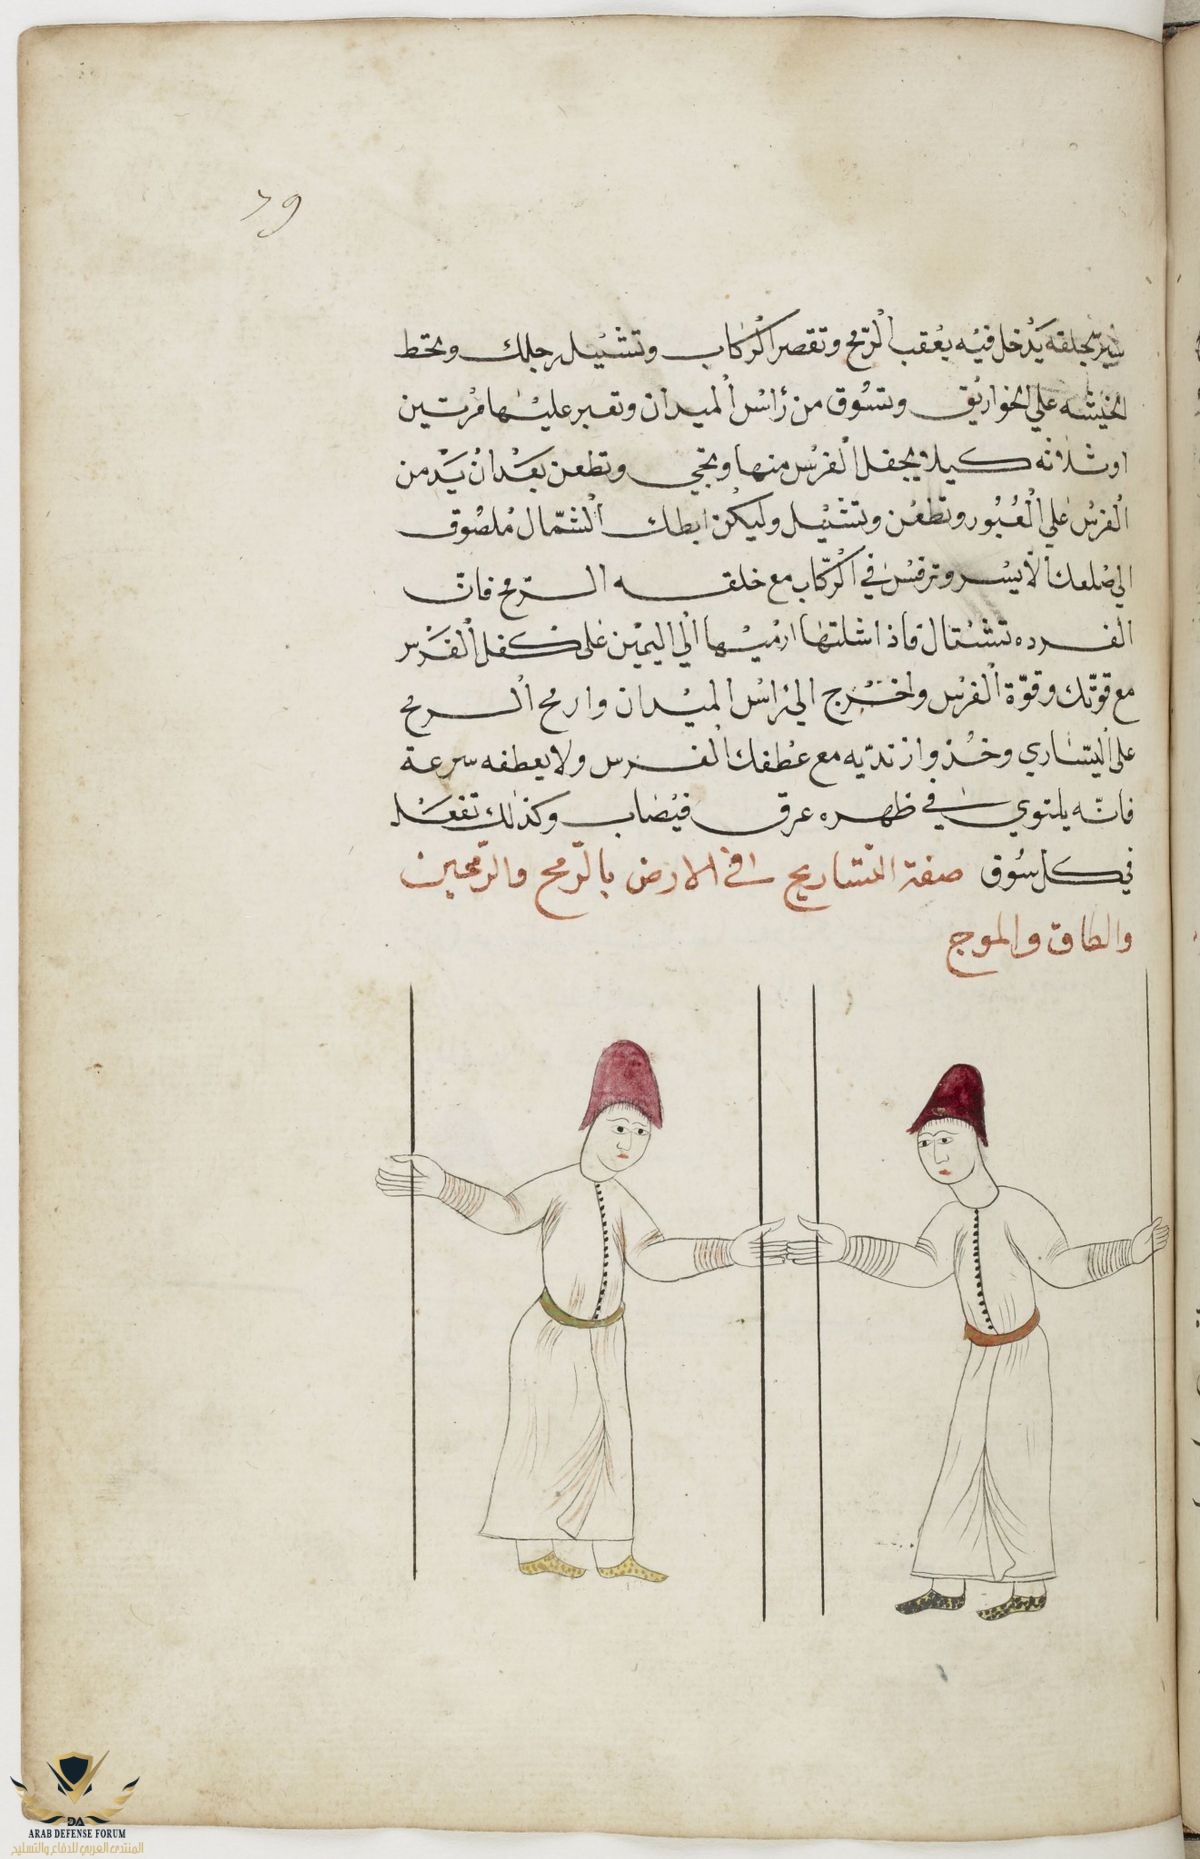 79
سير بحلقه يدخل فيه بعُقب الرّمح وتقصر الركاب وتشيل رجلك وتحط
الخيشه على الخواريق وتسُوق من رأس الميدان وتعبر عليها مرتين
او ثلاثه كيلا يجفل الفرس منها وتجي وتطعن بَعْد انْ يَدْمن
الفرسُ على الْعُبُور وتطعُن وتشيل وليكن ابطك الشّمال مُلصُوق
الى ضلعك الأيسر وترفس في الركّاب مع خلقه الرّمح فانّ
الفرده تنشال فاذا شلتها ارميها الى اليمين على كفل الفَرَس
مع قوّتك وقوّة الفرس واخرج الى رأس الميْدان وارمح الرمح
على اليَسَاري وخُذ وازندّيه مع عَطفك الفرس ولا يعطفه سرعة
فانّه يلتوي في ظهره عرق فيُصَاب وكذلك تفعَل
في كل سُوق صفة التشاريح في الارض بالرّمح والرّمحين
والطاق والموج
DA
ARAB DEFENSE FORUM
المنتدى العربي للدفاع والتسليح